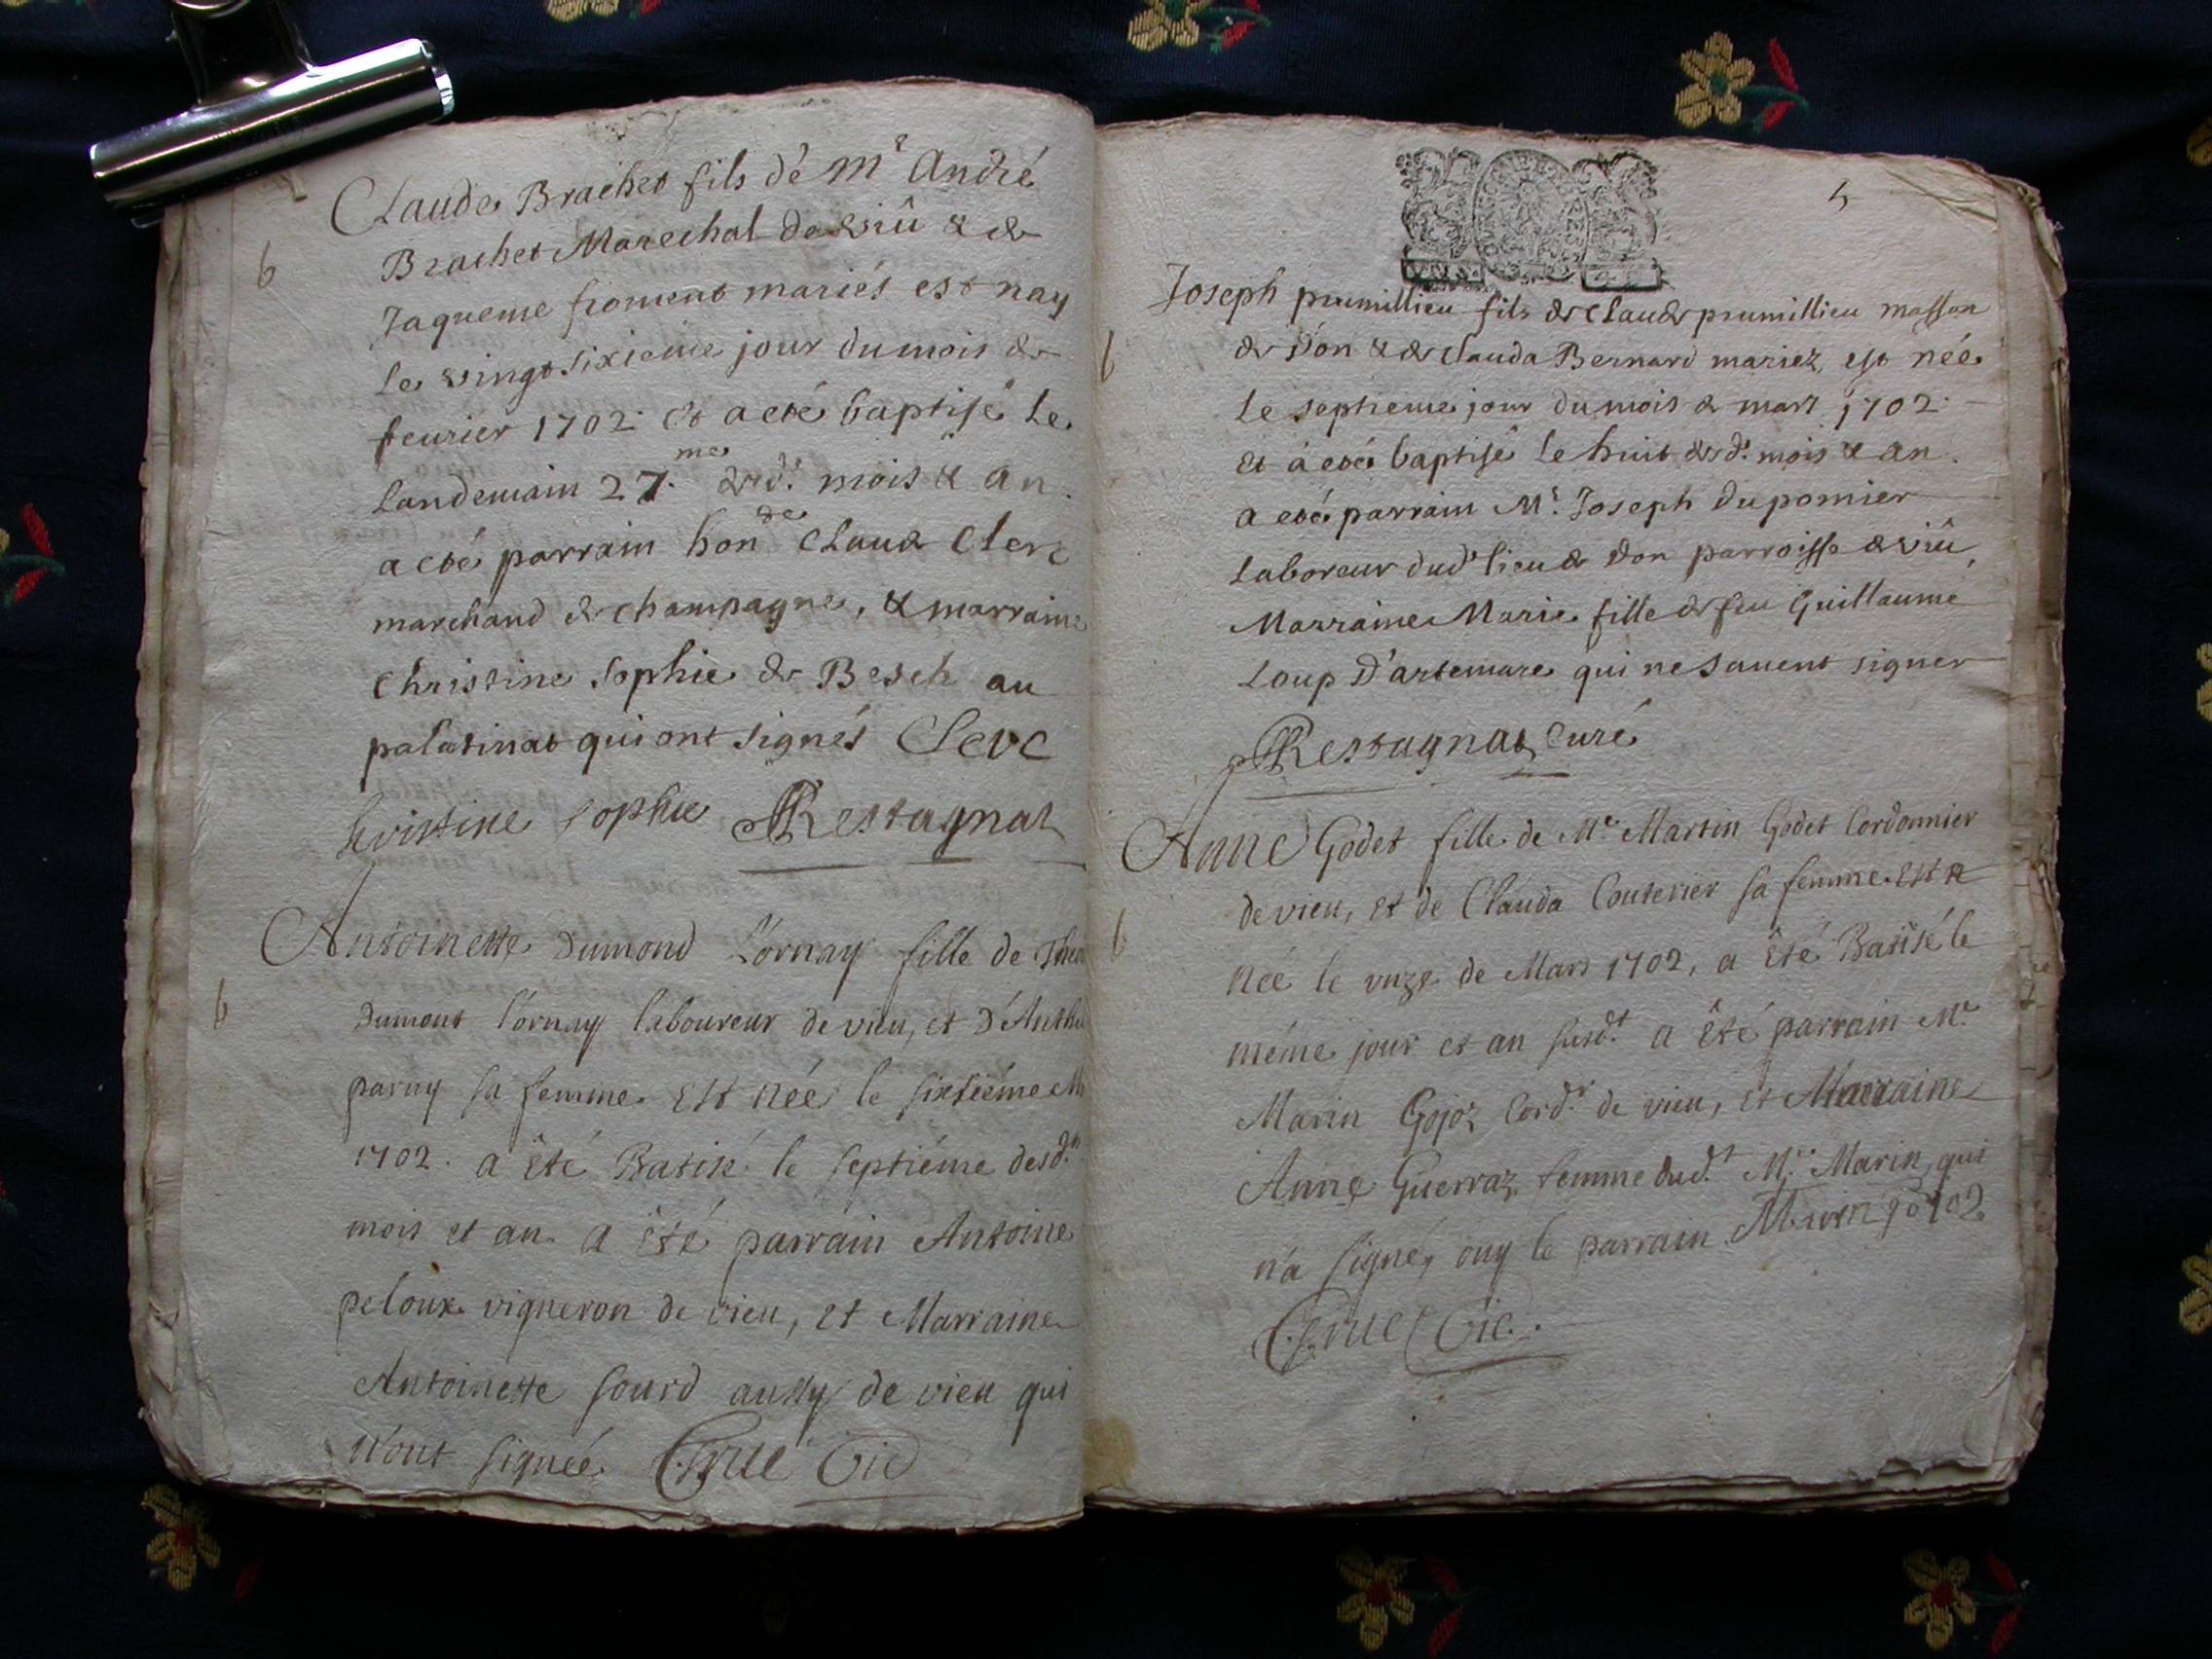 b
Claude Brachet fils dé mr André
Brachet Marechal de viû & de
Jaqueme froment mariés est nay
le vingt sixieme jour du mois de
feurier 1702. Et a eté baptisé le
landemain 27.me de d.t mois & an.
a eté parrain hon.de Claude Clerc
marchand de champagne, & marraine
Christine sophie de Besch au
palatinat qui ont signés Clerc
kristine sophie Restagnat
b
Antoinette Dumond L'ornay fille de
Dumont l'ornay laboureur de vieu, et d'Anthel
paruy sa femme Est née le sixiéme M
1702. a êté Batisé le septiéme desd.ts
mois et an. a êté parrain Antoine
peloux vigneron de vieu, et Marraine
Antoinette sourd aussy de vieu qui
n'ont signéé. vic
5
b
Joseph prumillieu fils de Claude prumillieu masson
de Don & de Clauda Bernard mariez, est née
le septieme jour du mois de mars 1702.
Et á eté baptisé le huit de d.t mois & an.
a eté parrain Mr. Joseph Dupomier
Laboreur dud.t lieu de Don parroisse de viû
Marraine Marie fille de feu Guillaume
Loup D'artemare qui ne sauent signer
Restagnat curé
b
Anne Godet fille de Mr. Martin Godet Cordonnier
de vieu, et de Clauda Couterier sa femme Est
née le vnze de Mars 1702, a êté Batisé le
méme jour et an susd.t a êté parrain Mr
Marin Gojoz Cord.r de vieu, et Marraine
Anne Guerraz femme dud.t Mr. Marin, qui
n'a signé, ouy le parrain. Marin
vic.